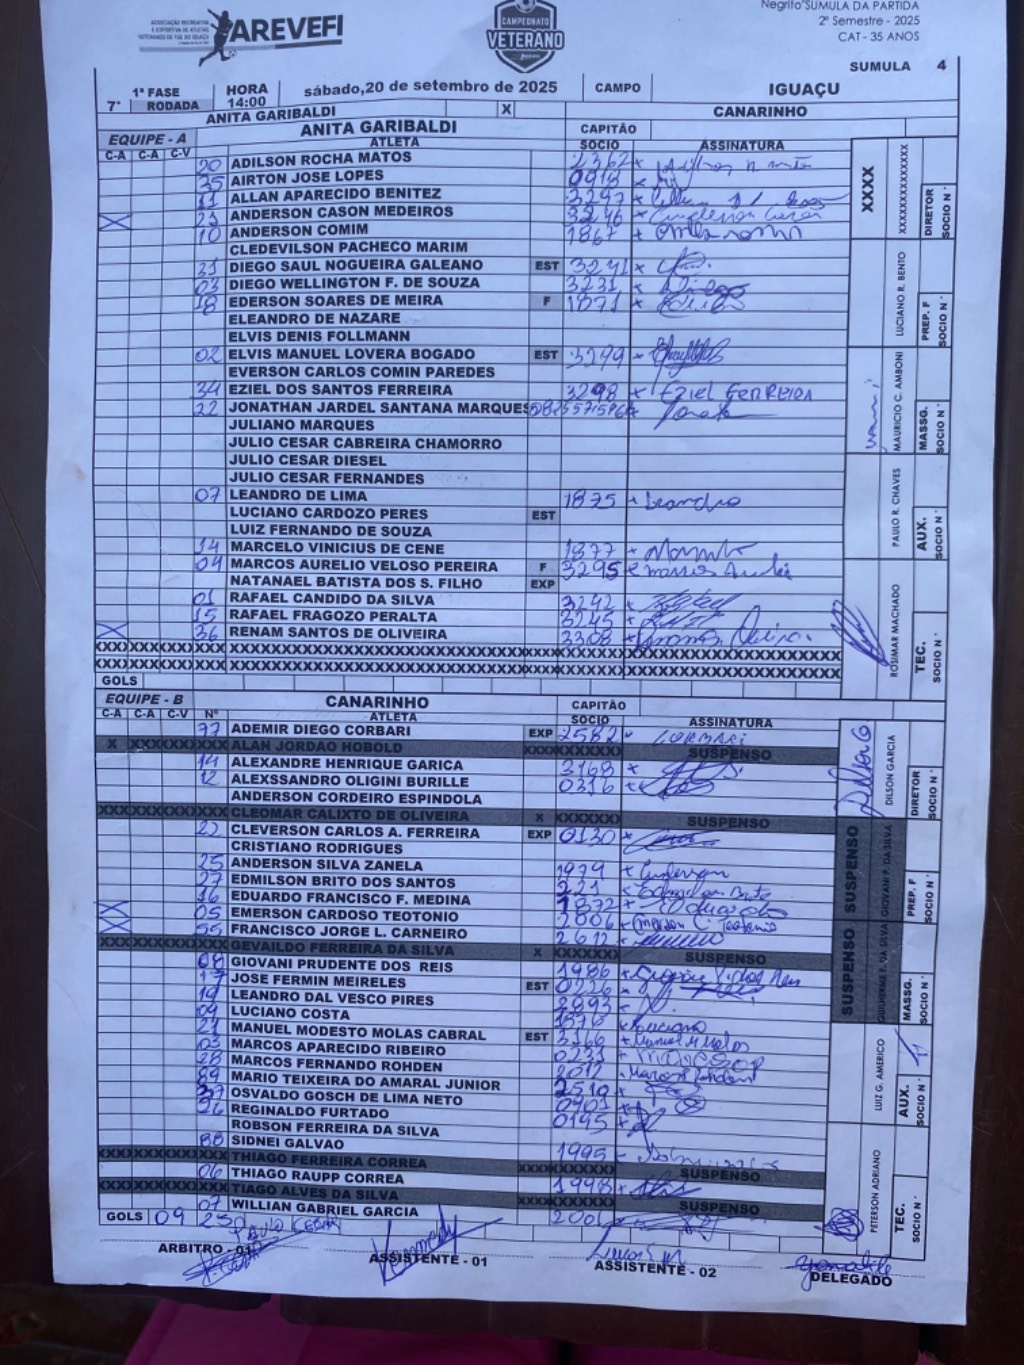 ASSOCIAÇÃO RECREATIVA
E ESPORTIVA DE ATLETAS
VETERANOS DE FOZ DO IGUAÇU
AREVEFI
CAMPEONATO
VETERANO
Negrito*SUMULA DA PARTIDA
2º Semestre - 2025
CAT - 35 ANOS
SUMULA 4
7ª 1ª FASE RODADA HORA 14:00 sábado,20 de setembro de 2025 CAMPO IGUAÇU
ANITA GARIBALDI X CANARINHO
EQUIPE - A ANITA GARIBALDI CAPITÃO
C-A C-A C-V ATLETA SOCIO ASSINATURA
20 ADILSON ROCHA MATOS 2362
35 AIRTON JOSE LOPES 0918
11 ALLAN APARECIDO BENITEZ 3297
X 23 ANDERSON CASON MEDEIROS 3246
10 ANDERSON COMIM 1867
CLEDEVILSON PACHECO MARIM
31 DIEGO SAUL NOGUEIRA GALEANO EST 3241
03 DIEGO WELLINGTON F. DE SOUZA 3231
18 EDERSON SOARES DE MEIRA F 1871
ELEANDRO DE NAZARE
ELVIS DENIS FOLLMANN
02 ELVIS MANUEL LOVERA BOGADO EST 3299
EVERSON CARLOS COMIN PAREDES
34 EZIEL DOS SANTOS FERREIRA 3298 x EZIEL FERREIRA
22 JONATHAN JARDEL SANTANA MARQUES
JULIANO MARQUES
JULIO CESAR CABREIRA CHAMORRO
JULIO CESAR DIESEL
JULIO CESAR FERNANDES
07 LEANDRO DE LIMA 1875 x Leandro
LUCIANO CARDOZO PERES EST
LUIZ FERNANDO DE SOUZA
14 MARCELO VINICIUS DE CENE 1877
04 MARCOS AURELIO VELOSO PEREIRA F 3295
NATANAEL BATISTA DOS S. FILHO EXP
01 RAFAEL CANDIDO DA SILVA 3242
15 RAFAEL FRAGOZO PERALTA 3245
X 36 RENAM SANTOS DE OLIVEIRA 3308
GOLS
XXXX
XXXXXXXXXXXXXX
DIRETOR SOCIO Nº
LUCIANO R. BENTO PREP. F SOCIO Nº
MAURICIO C. AMBONI MASSG. SOCIO Nº
PAULO R. CHAVES AUX. SOCIO Nº
ROSIMAR MACHADO TEC. SOCIO Nº
EQUIPE - B CANARINHO CAPITÃO
C-A C-A C-V Nº ATLETA SOCIO ASSINATURA
77 ADEMIR DIEGO CORBARI EXP 2582
ALAN JORDAO HOBOLD SUSPENSO
14 ALEXANDRE HENRIQUE GARICA 3168
12 ALEXSSANDRO OLIGINI BURILLE 0316
ANDERSON CORDEIRO ESPINDOLA
CLEOMAR CALIXTO DE OLIVEIRA X SUSPENSO
CLEVERSON CARLOS A. FERREIRA EXP 0130
CRISTIANO RODRIGUES
25 ANDERSON SILVA ZANELA 1979 Anderson
27 EDMILSON BRITO DOS SANTOS 221
16 EDUARDO FRANCISCO F. MEDINA 1872
X 05 EMERSON CARDOSO TEOTONIO 2806
X 55 FRANCISCO JORGE L. CARNEIRO 2612
GEVAILDO FERREIRA DA SILVA X SUSPENSO
08 GIOVANI PRUDENTE DOS REIS 1986
17 JOSE FERMIN MEIRELES EST 0226
19 LEANDRO DAL VESCO PIRES 2993
09 LUCIANO COSTA 1876 x Luciano
21 MANUEL MODESTO MOLAS CABRAL EST 3166
03 MARCOS APARECIDO RIBEIRO 0231
28 MARCOS FERNANDO ROHDEN 2012 Marcos Rohden
89 MARIO TEIXEIRA DO AMARAL JUNIOR 2510
37 OSVALDO GOSCH DE LIMA NETO 0901
26 REGINALDO FURTADO 0195
ROBSON FERREIRA DA SILVA
88 SIDNEI GALVAO 1995
THIAGO FERREIRA CORREA SUSPENSO
06 THIAGO RAUPP CORREA 1998
TIAGO ALVES DA SILVA SUSPENSO
07 WILLIAN GABRIEL GARCIA 2001
GOLS 09 25
DILSON GARCIA DIRETOR SOCIO Nº
SUSPENSO GIOVANI P. DA SILVA PREP. F SOCIO Nº
SUSPENSO GUILHERME F. DA SILVA MASSG. SOCIO Nº
LUIZ G. AMERICO AUX. SOCIO Nº
PETERSON ADRIANO TEC. SOCIO Nº
PAULO CESAR
ARBITRO - 01
Kennedy
ASSISTENTE - 01
ASSISTENTE - 02
DELEGADO